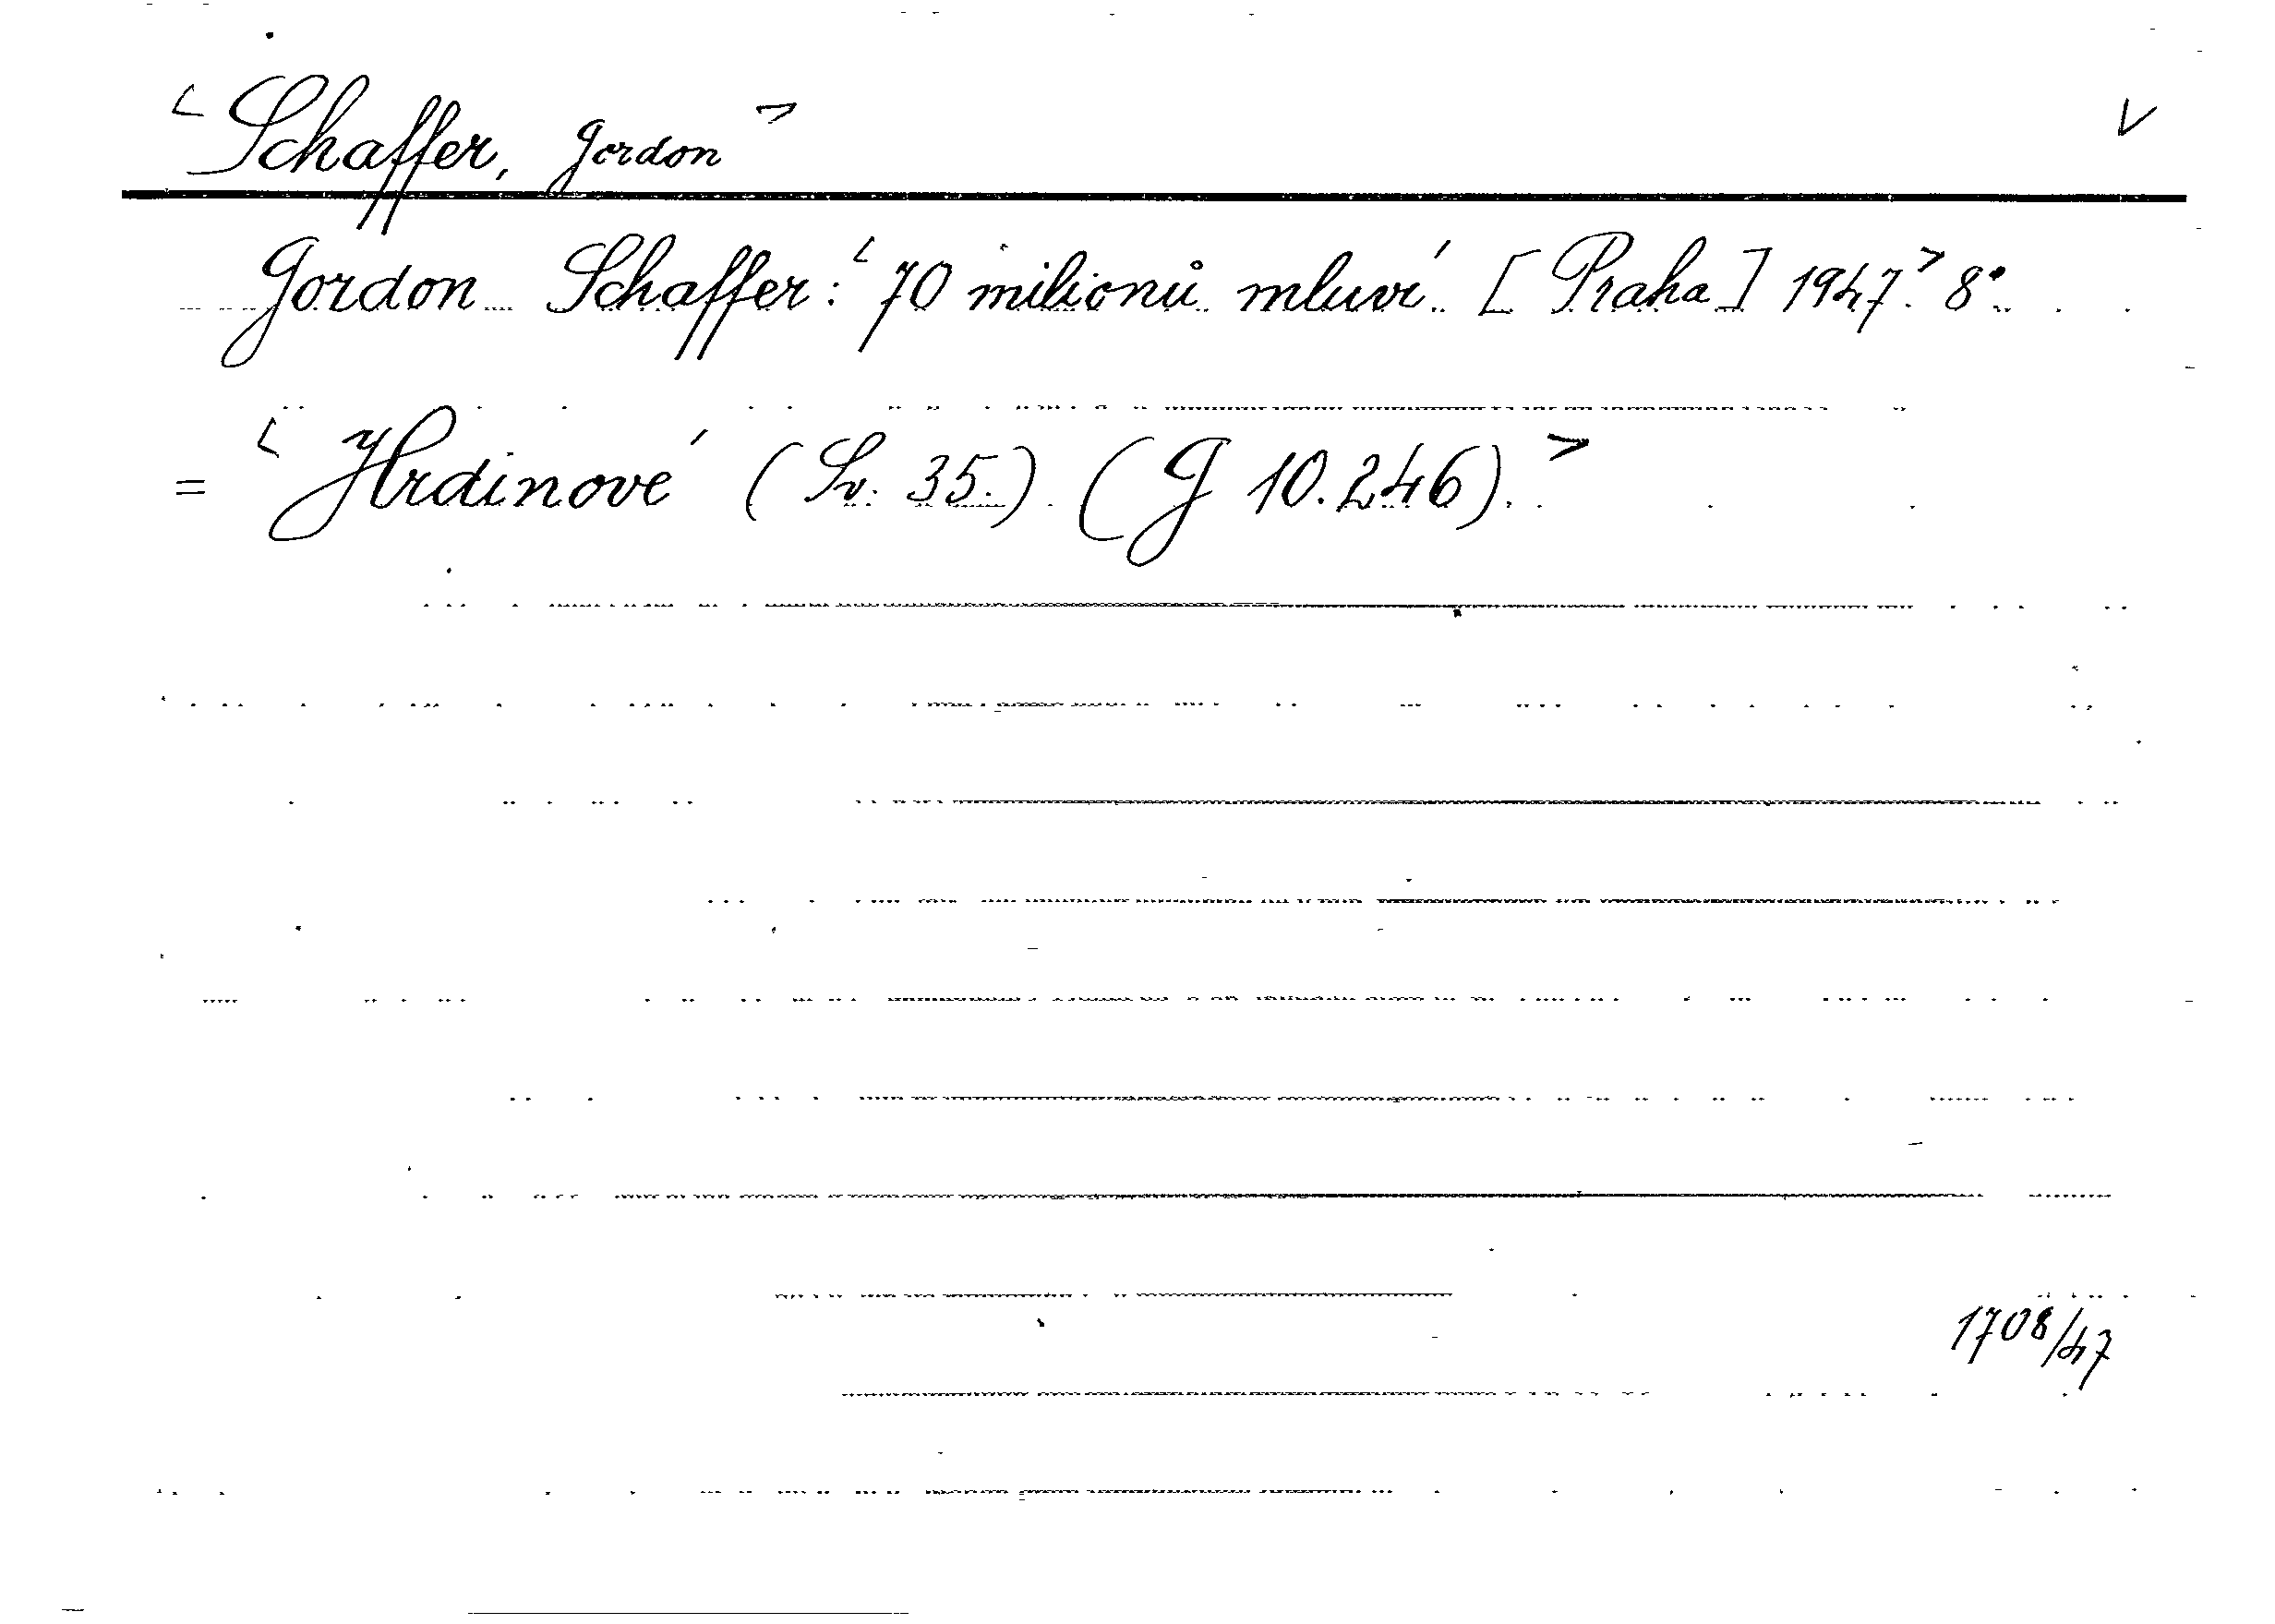 < Schaffer, Gordon > V
Gordon Schaffer: < 70 milionů mluví. [Praha] 1947. > 8°.
= < Hrdinové (Sv. 35.) (G 10.246). >
1708/47